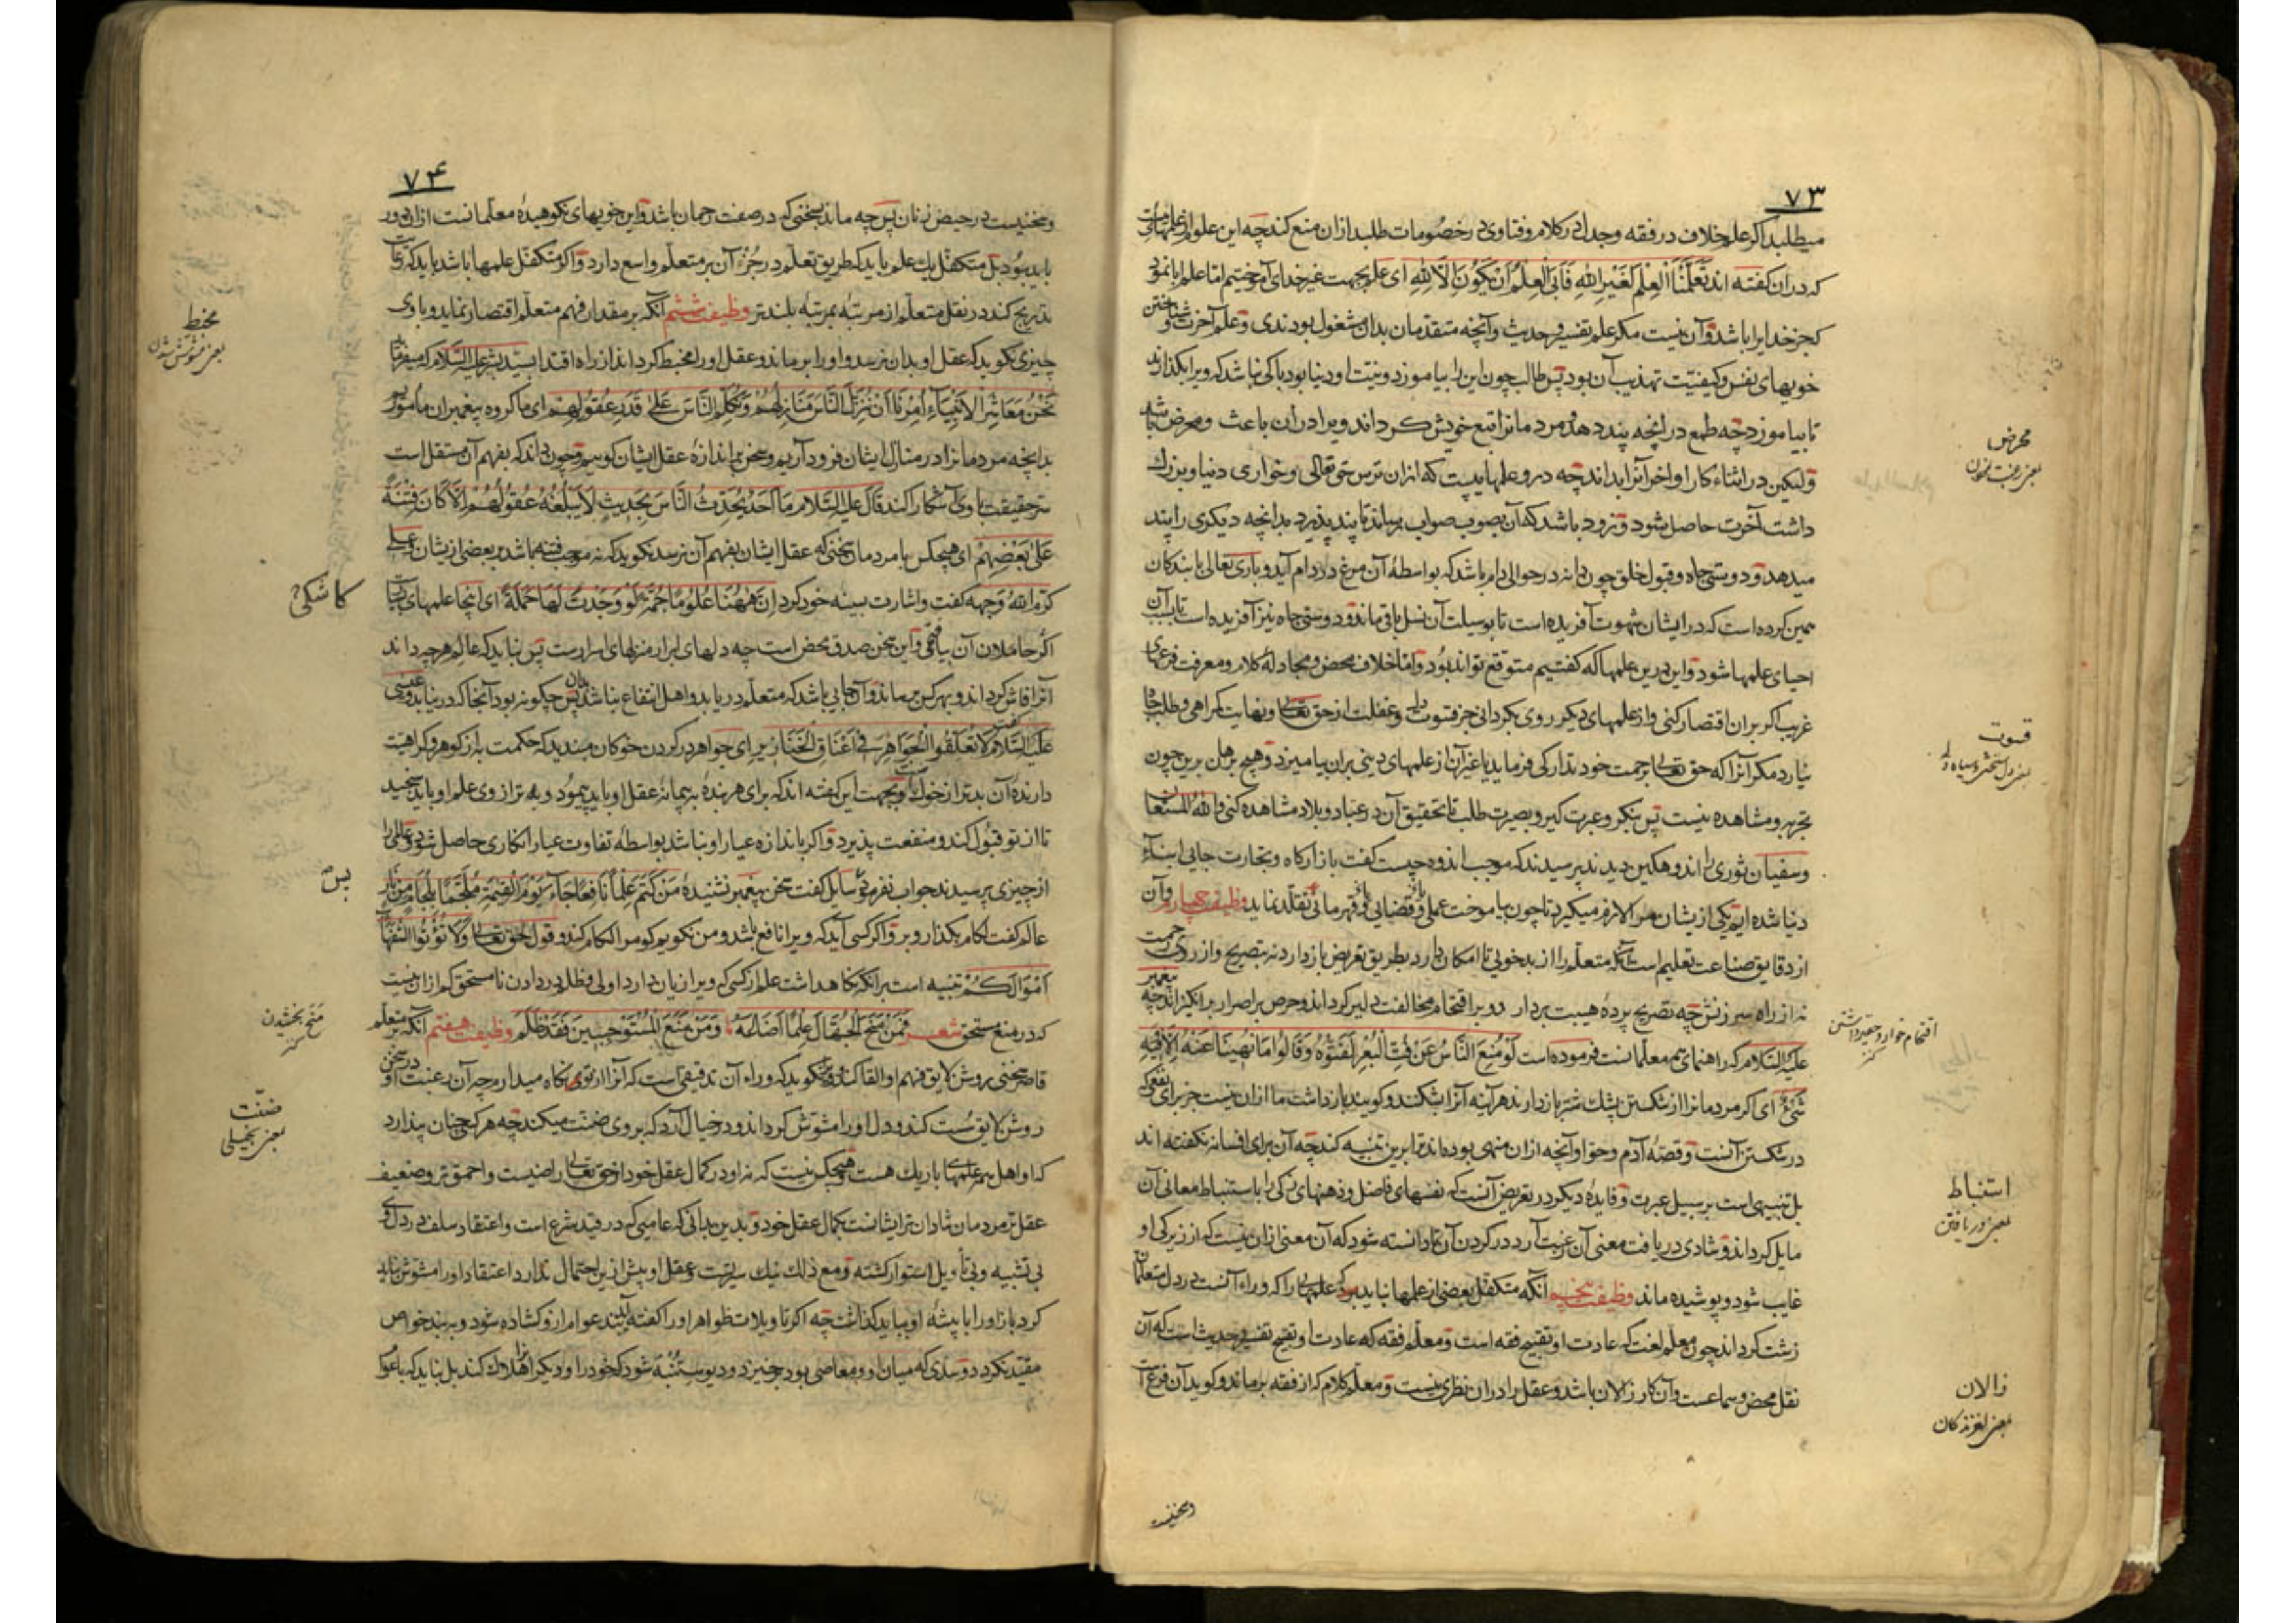 ۷۳
میطلبد اگر علم خلاف در فقه و جدل در کلام و فتاوی در خصومات طلبد از ان منع کند چه این علوم از علمهای
که در ان گفته اند تعلمنا العلم لغیر الله فابی العلم ان یکون الا لله ای علم بجهت غیر خدای آموختیم اما علم ابا نمود
که جز خدایرا باشد و آن نیست مگر علم تفسیر و حدیث و آنچه متقدمان بدان مشغول بودندی و علم آخرت و شناختن
خویهای نفس و کیفیت تهذیب آن بود پس طالب چون این را بیاموزد و نیت او دنیا بود باکی نباشد که ویرا بگذارند
تا بیاموزد چه طمع در انچه پند دهد و مردمانرا تبع خویش گرداند ویرا در ان باعث و محرض باشد
ولیکن در اثناء کار او اخر آنرا بداند چه در و علمهاییست که از ان ترس حق تعالی و خواری دنیا و بزرگ
داشت آخرت حاصل شود و زود باشد که آن بصوب صواب برساند تا پند پذیرد بدانچه دیگری را پند
میدهد و دوستی جاه و قبول خلق چون دانه در حوالی دام باشد که بواسطه آن مرغ در دام آید و باری تعالی با بندگان
همین کرده است که در ایشان شهوت آفریده است تا بوسیلت آن نسل باقی ماند و دوستی جاه نیز آفریده است تا بسبب آن
احیای علمها شود و این درین علمها که گفتیم متوقع تواند بود و اما خلاف محض و مجادله کلام و معرفت فرعهای
غریب اگر بر ان اقتصار کنی و از علمهای دیگر روی بگردانی جز قسوت دل و غفلت از حق تعالی و نهایت گمراهی و طلب جاه
نیارد مگر آنرا که حق تعالی برحمت خود تدارکی فرماید یا غیر آن از علمهای دینی بران بیامیزد و هیچ برهان برین چون
تجربه و مشاهده نیست پس بنگر و عبرت گیر و بصیرت طلب تا تحقیق آن در عباد و بلاد مشاهده کنی والله المستعان
و سفیان ثوری را اندوهگین دیدند پرسیدند که موجب اندوه چیست گفت بازارگاه و تجارت جایی ابناء
دنیا شده ایم یکی از یشان مرا لازم میگیرد تا چون بیاموخت عملی یا قضایی یا قهرمانی تقلد نماید وظیفت چهارم و آن
از دقایق صناعت تعلیم است آنکه متعلم را از بدخویی تا امکان دارد بطریق تعریض باز دارد نه بتصریح و از روی رحمت
نه از راه سرزنش چه تصریح پرده هیبت بردارد و بر اقتحام مخالفت دلیر گرداند و حرص بر اصرار بر انگیزاند چه پیغمبر
علیه السلام که راهنمای همه معلمانست فرموده است لو منع الناس عن فت البعر لفتوه و قالوا ما نهینا عنه الا فیه
شئ ای اگر مردمانرا از شکستن پشک شتر باز دارند هر آینه آنرا بشکنند و گویند باز داشت ما از ان نیست جز برای نفعی که
در شکستن آنست و قصه آدم و حوا و آنچه از ان منهی بوده اند ترا برین تنبیه کند چه آن برای افسانه نگفته اند
بل تنبیهی است بر سبیل عبرت و فایده دیگر در تعریض آنست که نفسهای فاضل و ذهنهای زکی را باستنباط معانی آن
مایل گرداند و شادی دریافت معنی آن رغبت آرد در کردن آن تا دانسته شود که آن معنی از ان نیست که از زیرکی او
غایب شود و پوشیده ماند وظیفت پنجم آنکه متکفل بعضی از علمها نباید که علمهایی را که وراء آنست در دل متعلمان
زشت گرداند چون معلم لغت که عادت او تقبیح فقه است و معلم فقه که عادت او تقبیح تفسیر و حدیث است که آن
نقل محض و سماعست و آن کار زالان باشد و عقل را در ان نظری نیست و معلم کلام که از فقه برماند و گوید آن فرع است
محرض
بمعنی رغبت نمودن
قسوت
بمعنی دل سختی و سیاه دلی
اقتحام خوار و حقیر داشتن
کنز
استنباط
بمعنی دریافتن
زالان
بمعنی
و سخنیست
۷۴
و سخنیست در حیض زنان پس چه ماند بسخنی که در صفت رحمان باشد و این خویهای نکوهیده معلمانست از ان دور
باید بود بل متکفل یک علم باید که طریق تعلم در جز آن بر متعلم واسع دارد و اگر متکفل علمها باشد باید که رعایت
تدریج کند در نقل متعلم از مرتبه بمرتبه بلندتر وظیفت ششم آنکه بر مقدار فهم متعلم اقتصار نماید و با وی
چیزی نگوید که عقل او بدان نرسد و او را برماند و عقل او را مخبط گرداند از راه اقتدا بسید بشر علیه السلام که میفرماید
نحن معاشر الانبیاء امرنا ان ننزل الناس منازلهم و نکلم الناس علی قدر عقولهم ای ما گروه پیغمبران ماموریم
بدانچه مردمانرا در منازل ایشان فرود آریم و سخن باندازه عقل ایشان گوییم و چون داند که بفهم آن مستقل است
سر حقیقت با وی آشکارا کند قال علیه السلام ما احد یحدث الناس بحدیث لا یبلغه عقولهم الا کان فتنة
علی بعضهم ای هیچکس با مردمان سخنی که عقل ایشان بفهم آن نرسد نگوید که نه موجب فتنه باشد بر بعضی از یشان و علی
کرم الله وجهه گفت و اشارت بسینه خود کرد ان ههنا علوما جمة لو وجدت لها حملة ای اینجا علمهای بسیارست
اگر حاملان آن بیافتمی و این سخن صدق محض است چه دلهای ابرار منزلهای اسرارست پس نباید که عالم هر چه داند
آنرا فاش گرداند و بهر کس برساند و آن جایی باشد که متعلم دریابد و اهل انتفاع نباشد پس چگونه بود آنجا که در نیابد و عیسی
علیه السلام گفت لا تعلقوا الجواهر فی اعناق الخنازیر ای جواهر در گردن خوکان مبندید که حکمت به از گوهر و کراهیت
دارنده آن بدتر از خوک است و بجهت این گفته اند که برای هر بنده به پیمانه عقل او باید پیمود و به ترازوی علم او باید سنجید
تا از تو قبول کند و منفعت پذیرد و اگر باندازه عیار او نباشد بواسطه تفاوت عیار انکاری حاصل شود و عالمی را
از چیزی پرسیدند جواب نفرمود سایل گفت سخن پیغمبر نشنیده من کتم علما نافعا جاء یوم القیمة ملجما بلجام من نار
عالم گفت لگام بگذار و برو اگر کسی آید که ویرا نافع باشد و من نگویم گو مرا لگام کند و قول حق تعالی ولا تؤتوا السفهاء
اموالکم تنبیه است برانکه نگاهداشت علم از کسی که ویرا زیان دارد اولی و ظلم در دادن نامستحق کم از ان نیست
که در منع مستحق شعر فمن منح الجهال علما اضاعه و من منع المستوجبین فقد ظلم وظیفت هفتم آنکه بر متعلم
قاصر سخنی روشن لایق فهم او القا کند و نگوید که وراء آن تدقیقی است که آنرا از تو نگاه میدارم چه آن رغبت او در سخن
روشن لایق سست کند و دل او را مشوش گرداند و در خیال آرد که بر وی ضنت میکند چه هر کس چنان پندارد
که او اهل همه علمهای باریک هست و هیچکس نیست که نه او در کمال عقل خود از حق تعالی راضیست و احمق تر و ضعیف
عقل تر مردمان شادان ترایشانست بکمال عقل خود و بدین بدانی که عامیی که در قید شرع است و اعتقاد سلف در دل وی
بی تشبیه و بی تأویل استوار گشته و مع ذلک نیک سیرتست و عقل او بیش از ین احتمال ندارد اعتقاد او را مشوش نباید
کرد باز او را با پیشه او بباید گذاشت چه اگر تاویلات ظواهر او را گفته آید بند عوام از و گشاده شود و به بند خواص
مقید نگردد و سدی که میان او و معاصی بود برخیزد و دیو ستنبه شود که خود را و دیگرانرا هلاک کند بل نباید که با عوام
مخبط
بمعنی مشوش شدن
کاشکی
پس
منح بخشیدن
کنز
ضنت
بمعنی بخیلی